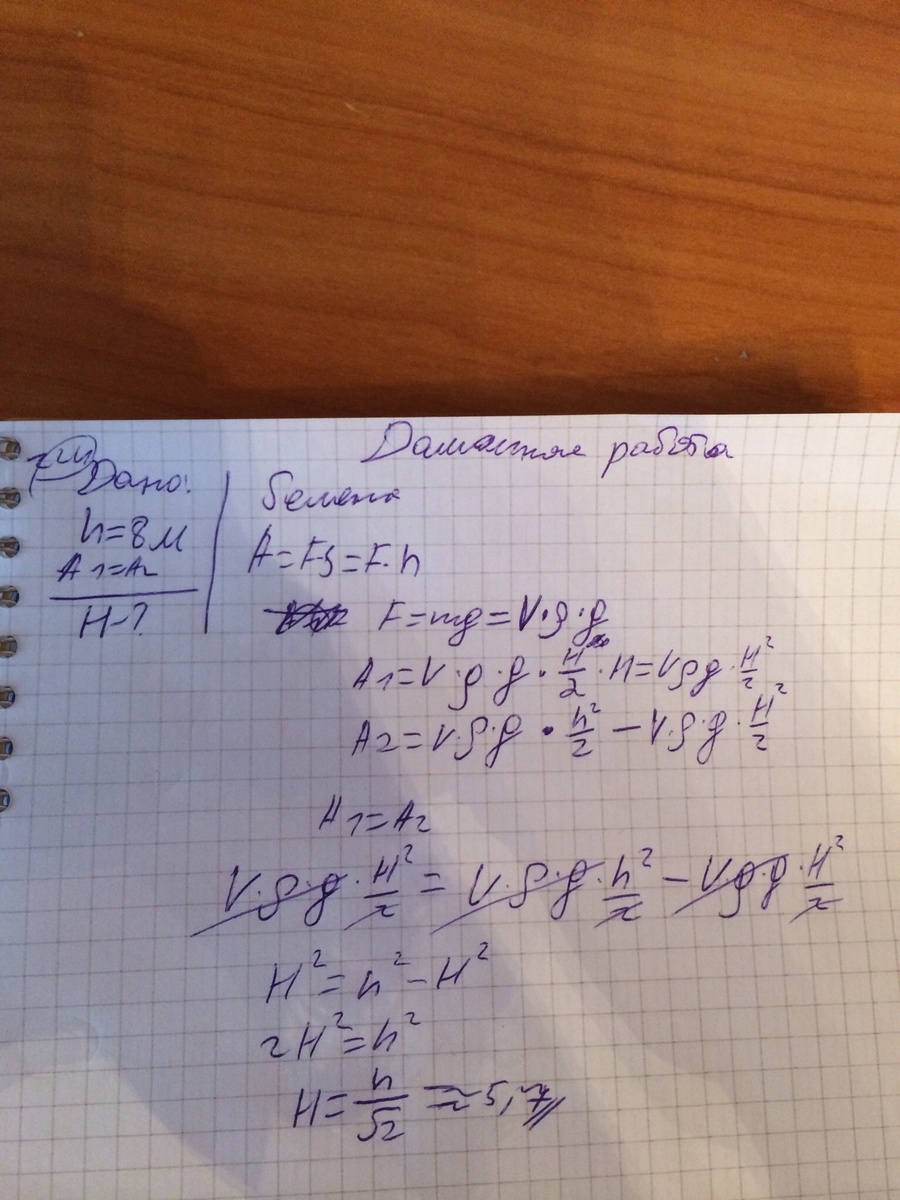 Домашняя работа
Дано:
h=8м
A1=A2
H-?
A=FS=F·h
F=mg=V·ρ·g
A1=V·ρ·g·H/2·H=Vρg·H²/2
A2=V·ρ·g·h²/2-V·ρ·g·H²/2
A1=A2
V·ρ·g·H²/2=V·ρ·g·h²/2-Vρg·H²/2
H²=h²-H²
2H²=h²
H=h/√2≈5,7